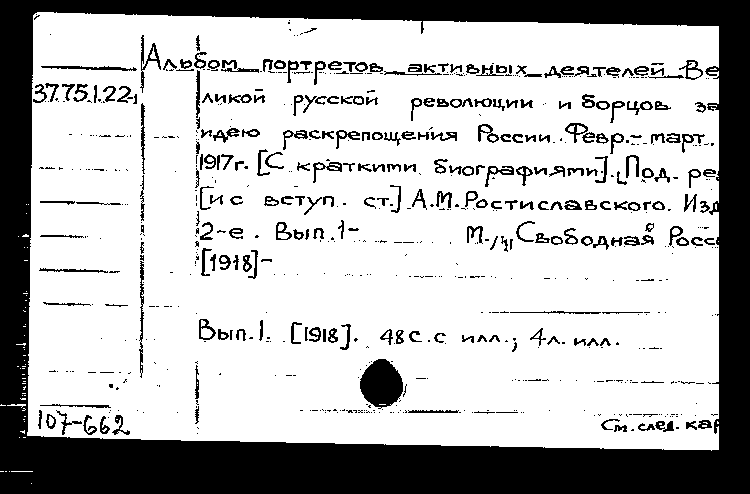 Альбом портретов активных деятелей Ве
37.75.1.22
ликой русской революции и борцов за
идею раскрепощения России. Февр.-март.
1917г. [С краткими биографиями]. [Под. ре
[и с вступ. ст.] А.М. Ростиславского. Изд
2-е. Вып.1- М., "Свободная Росс
[1918]-
Вып.1. [1918]. 48с. с илл.; 4л. илл.
107-662
См. след. кар